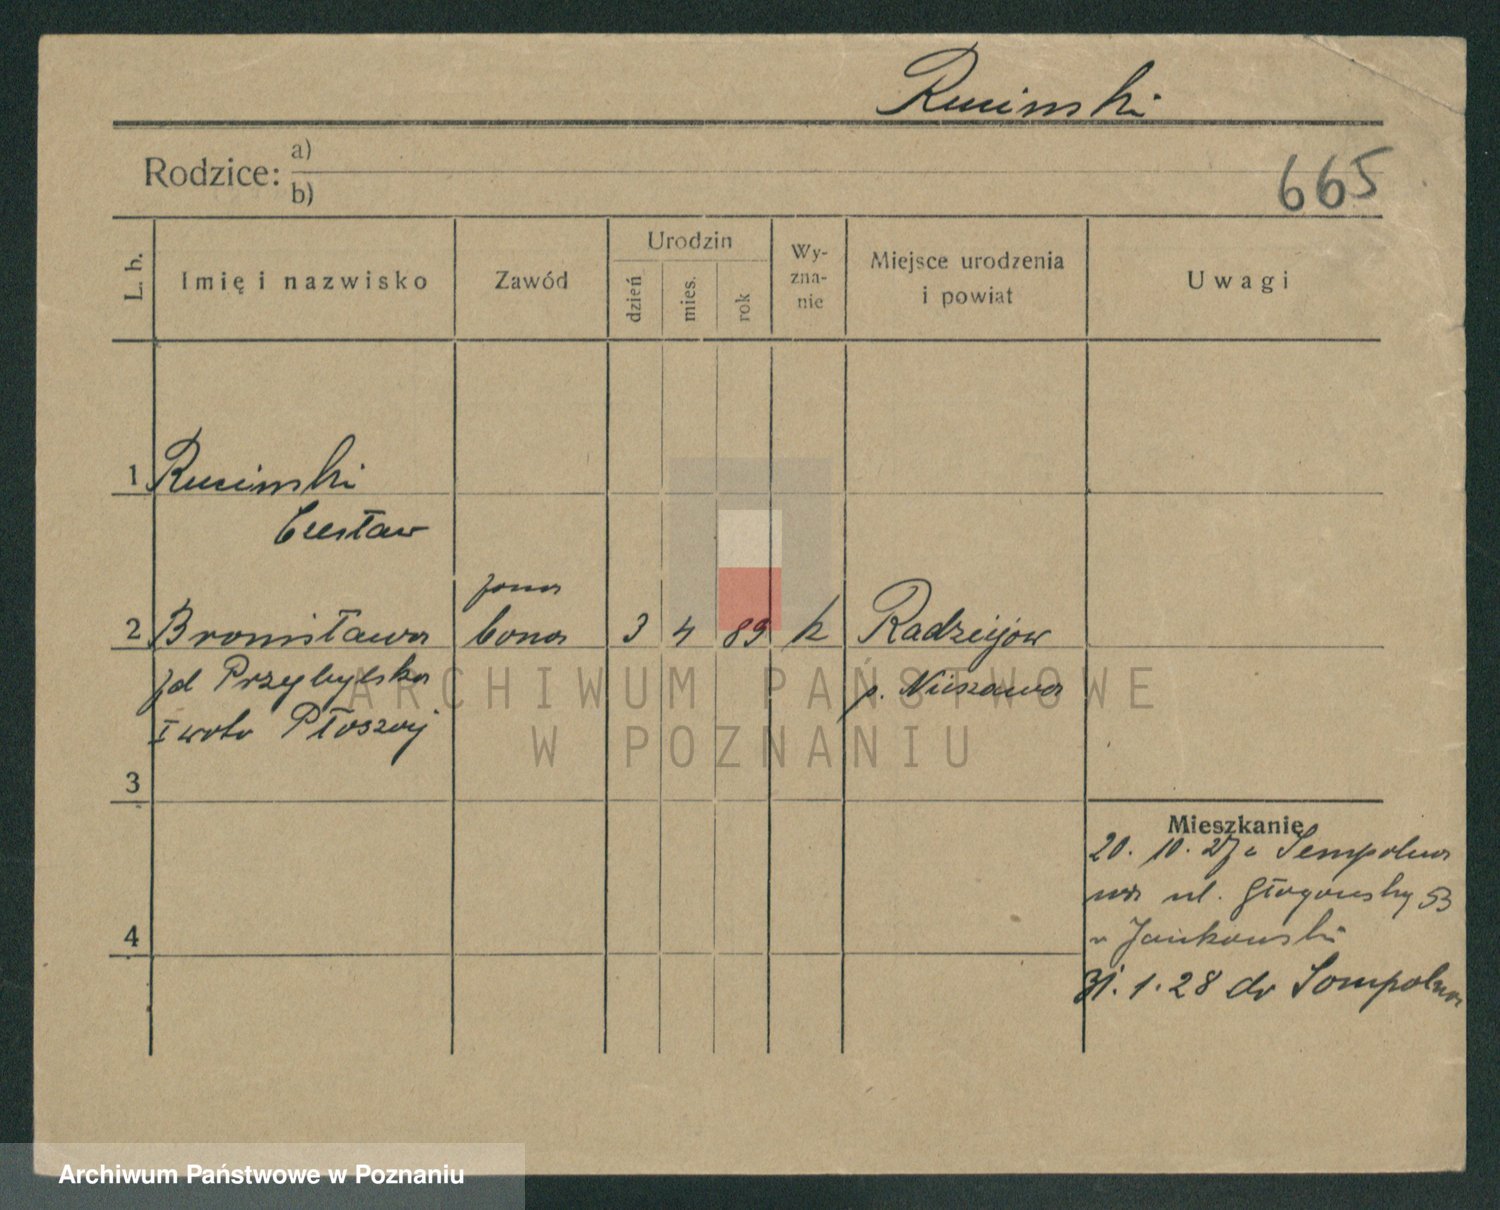 Rucinski
Rodzice: a)
b)
665
L. b.
Imię i nazwisko
Zawód
Urodzin
dzień
mies.
rok
Wy-
zna-
nie
Miejsce urodzenia
i powiat
Uwagi
1 Rucinski
Czesław
żona
2 Bronisława bona 3 4 89 k Radziejow
zd Przybylska p. Nieszawa
I voto Płoszaj
3
Mieszkanie
20. 10. 27 z Sempolna
ul. Głogowska 53
Jankowski
4
31. 1. 28 do Sompolna
ARCHIWUM PAŃSTWOWE
W POZNANIU
Archiwum Państwowe w Poznaniu